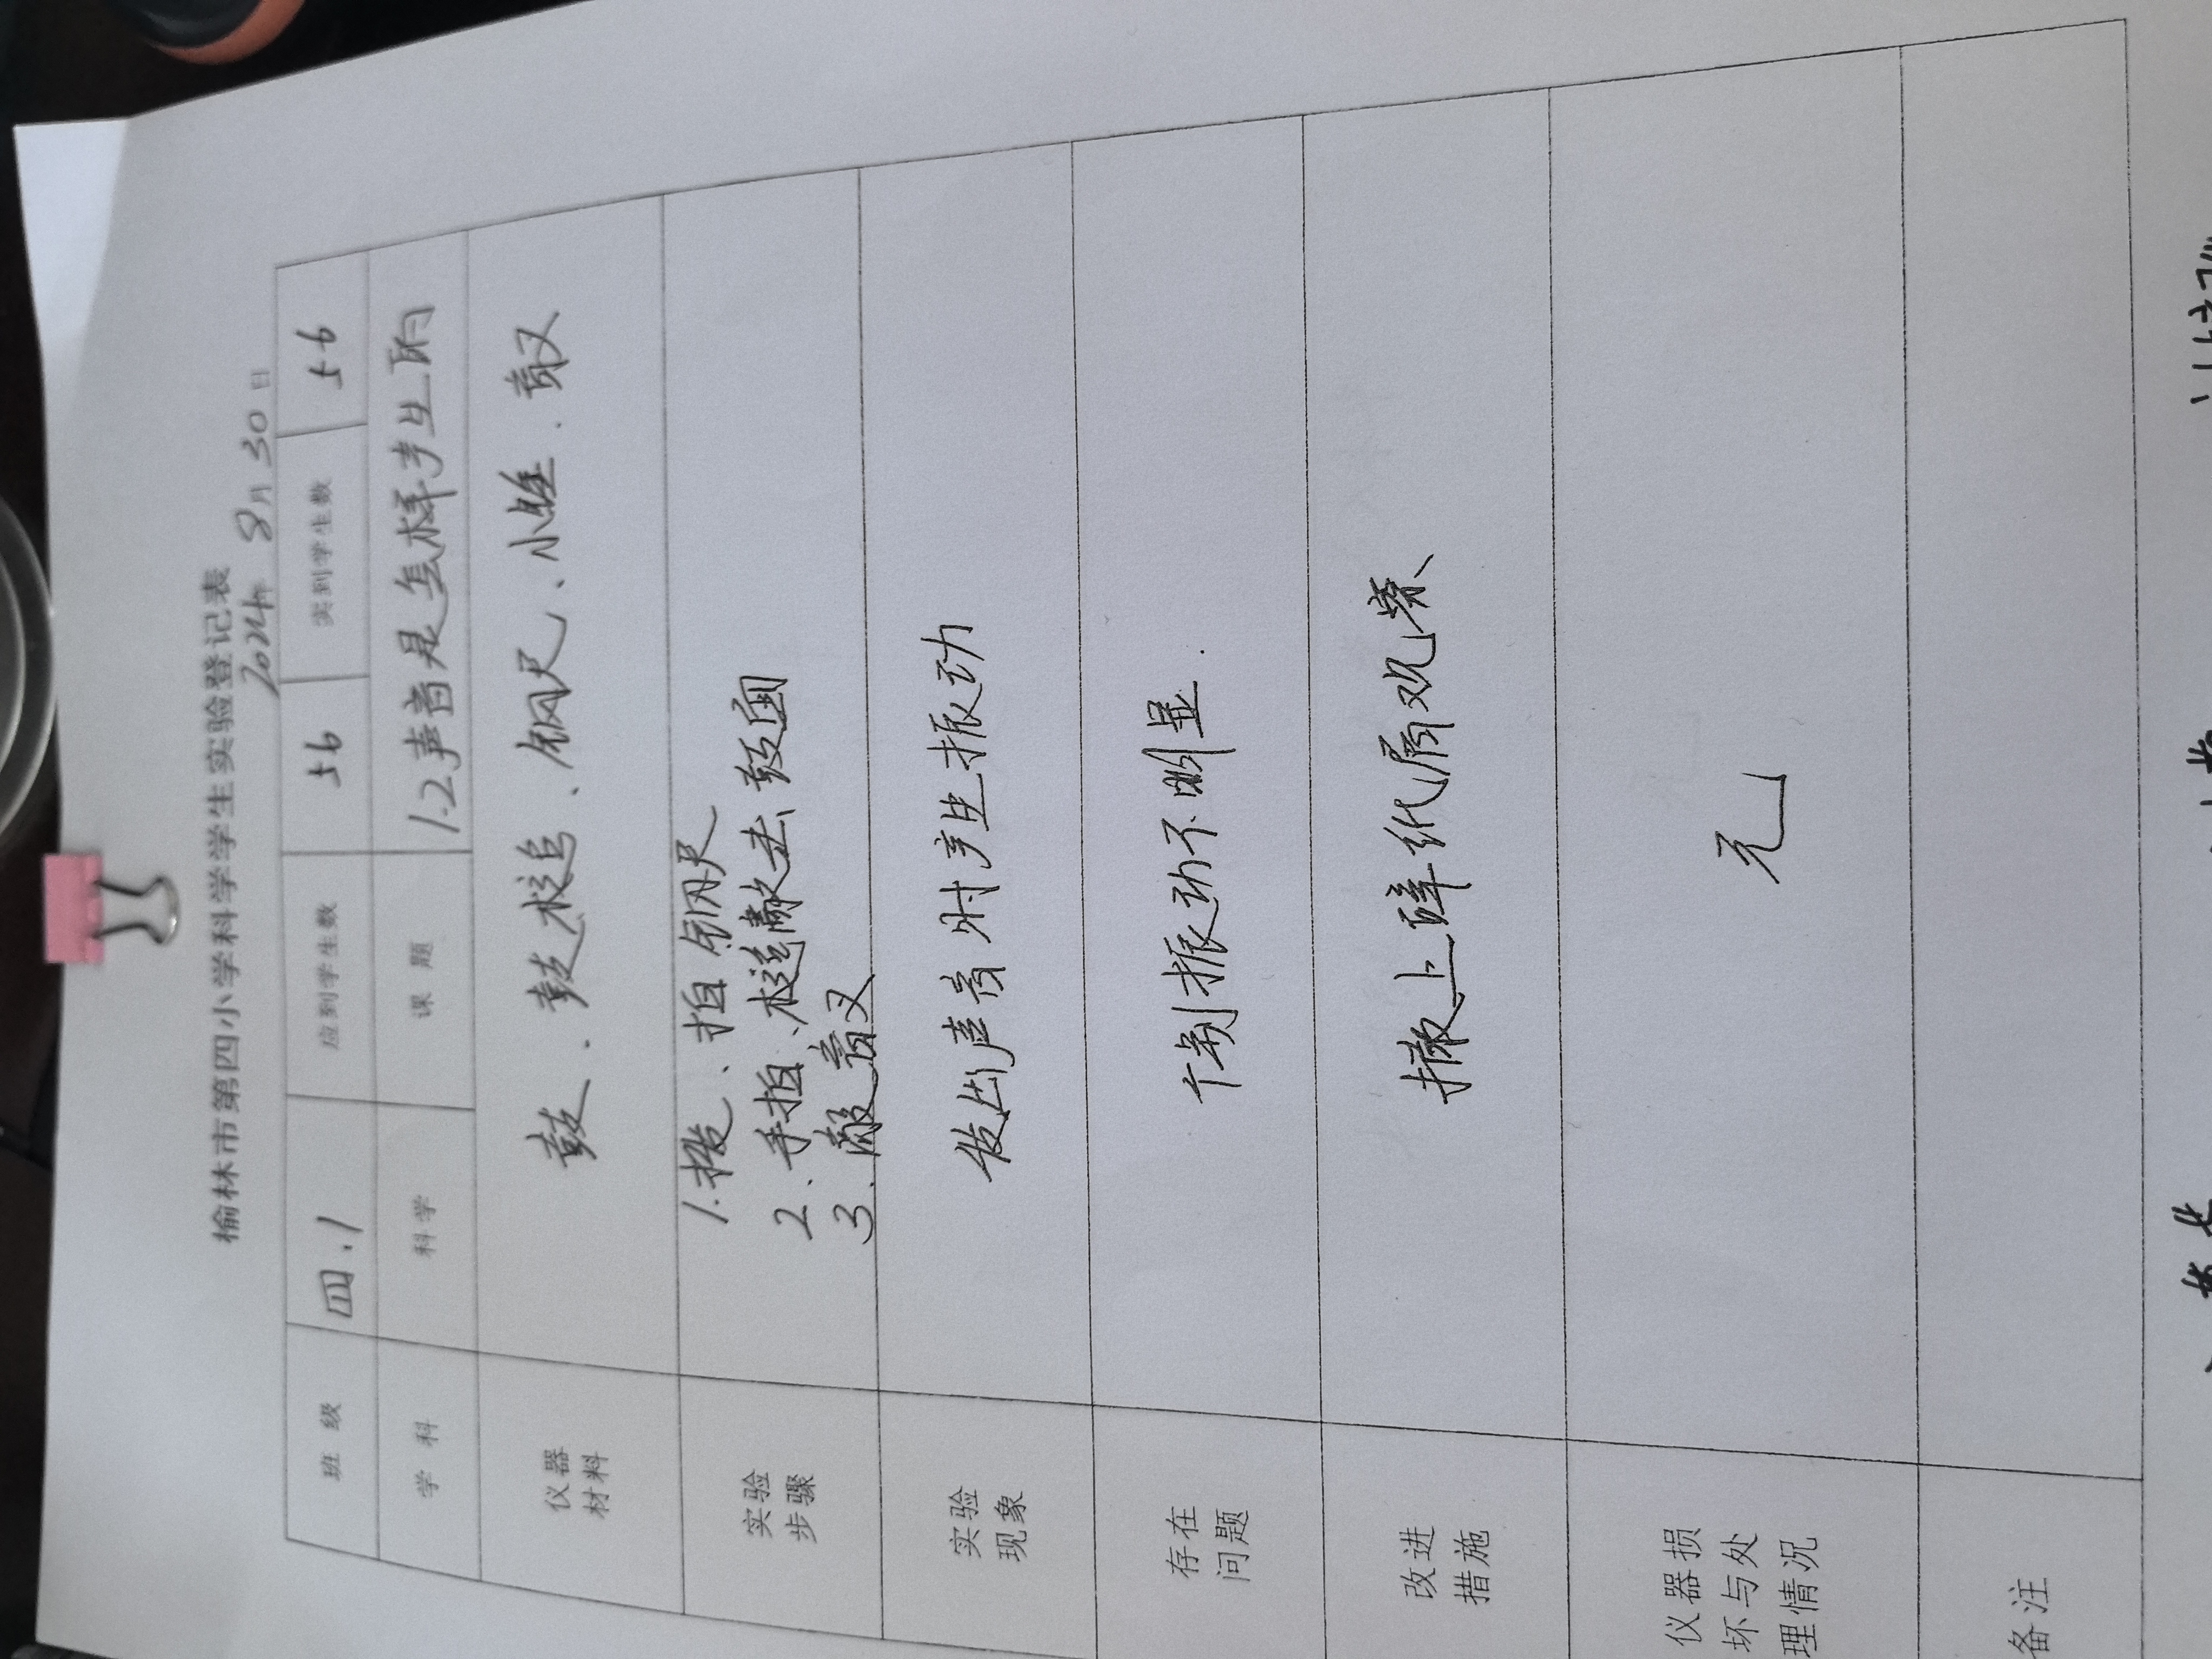 榆林市第四小学科学学生实验登记表
2024年 8月 30日
班 级 四.1 应到学生数 56 实到学生数 56
学 科 科学 课 题 1.2声音是怎样产生的
仪器
材料
鼓、鼓槌、钢尺、小 音叉
实验
步骤
1.拨、拍钢尺
2、手拍、槌敲击鼓面
3、敲音叉
实验
现象
发出声音时产生振动
存在
问题
个别振动不明显.
改进
措施
撒上碎纸屑观察
仪器损
坏与处
理情况
无
备注